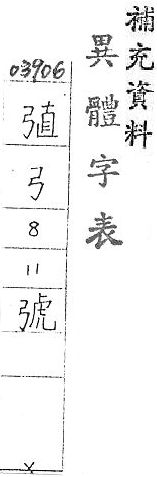 補充資料
異體字表
03906
𢐊
弓
8
11
號